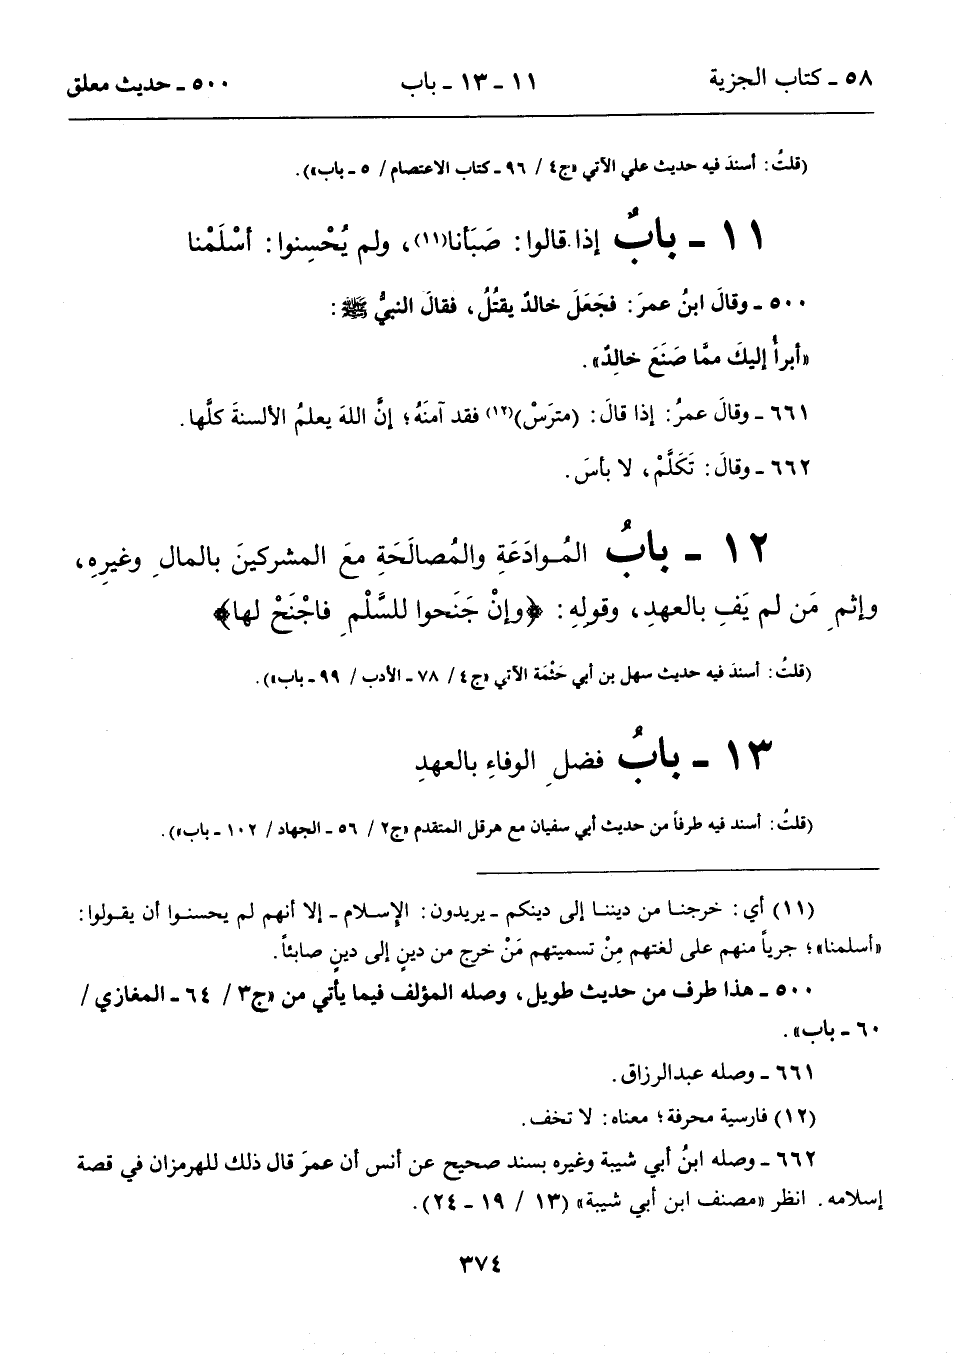 ٥٨ ـ كتاب الجزية ١١ ـ ١٣ ـ باب ٥٠٠ ـ حديث معلق
(قلتُ: أسندَ فيه حديث علي الآتي «ج٤ / ٩٦ ـ كتاب الاعتصام / ٥ ـ باب»).
١١ ـ بابٌ إذا قالوا: صَبَأنا(١١)، ولم يُحْسِنوا: أسْلَمْنا
٥٠٠ ـ وقالَ ابنُ عمرَ: فجَعَلَ خالدٌ يقتُلُ، فقالَ النبيُّ ﷺ:
«أبرأُ إليكَ ممَّا صَنَعَ خالِدٌ».
٦٦١ ـ وقالَ عمرُ: إذا قالَ: (مترَسْ)(١٢) فقد آمنَهُ؛ إنَّ اللهَ يعلمُ الألسنةَ كلَّها.
٦٦٢ ـ وقالَ: تَكَلَّمْ، لا بأسَ.
١٢ ـ بابُ المُوادَعَةِ والمُصالَحَةِ معَ المشركينَ بالمالِ وغيرِهِ،
وإثمِ مَن لم يَفِ بالعهدِ، وقولِهِ: ﴿وإنْ جَنَحوا للسَّلْمِ فاجْنَحْ لها﴾
(قلتُ: أسندَ فيه حديث سهل بن أبي حَثْمَة الآتي «ج٤ / ٧٨ ـ الأدب / ٩٩ ـ باب»).
١٣ ـ بابُ فضلِ الوفاءِ بالعهدِ
(قلتُ: أسند فيه طرفاً من حديث أبي سفيان مع هرقل المتقدم «ج٢ / ٥٦ ـ الجهاد / ١٠٢ ـ باب»).
(١١) أي: خرجنا من ديننا إلى دينكم ـ يريدون: الإسلام ـ إلا أنهم لم يحسنوا أن يقولوا:
«أسلمنا»؛ جرياً منهم على لغتهم مِنْ تسميتهم مَنْ خرج من دينٍ إلى دينٍ صابئاً.
٥٠٠ ـ هذا طرف من حديث طويل، وصله المؤلف فيما يأتي من «ج٣ / ٦٤ ـ المغازي /
٦٠ ـ باب».
٦٦١ ـ وصله عبدالرزاق.
(١٢) فارسية محرفة؛ معناه: لا تخف.
٦٦٢ ـ وصله ابنُ أبي شيبة وغيره بسند صحيح عن أنس أن عمرَ قال ذلك للهرمزان في قصة
إسلامه. انظر «مصنف ابن أبي شيبة» (١٣ / ١٩ ـ ٢٤).
٣٧٤